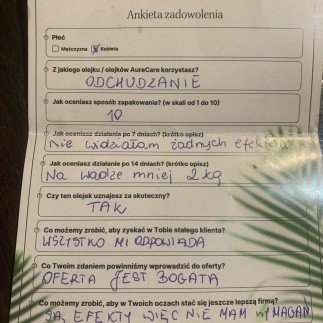 Ankieta zadowolenia
Płeć
Mężczyzna Kobieta
Z jakiego olejku / olejków AuraCare korzystasz?
ODCHUDZANIE
Jak oceniasz sposób zapakowania? (w skali od 1 do 10)
10
Jak oceniasz działanie po 7 dniach? (krótko opisz)
Nie widziałam żadnych efektów
Jak oceniasz działanie po 14 dniach? (krótko opisz)
Na wadze mniej 2 kg
Czy ten olejek uznajesz za skuteczny?
TAK
Co możemy zrobić, aby zyskać w Tobie stałego klienta?
WSZYSTKO MI ODPOWIADA
Co Twoim zdaniem powinniśmy wprowadzić do oferty?
OFERTA JEST BOGATA
Co możemy zrobić, aby w Twoich oczach stać się jeszcze lepszą firmą?
SĄ EFEKTY WIĘC NIE MAM